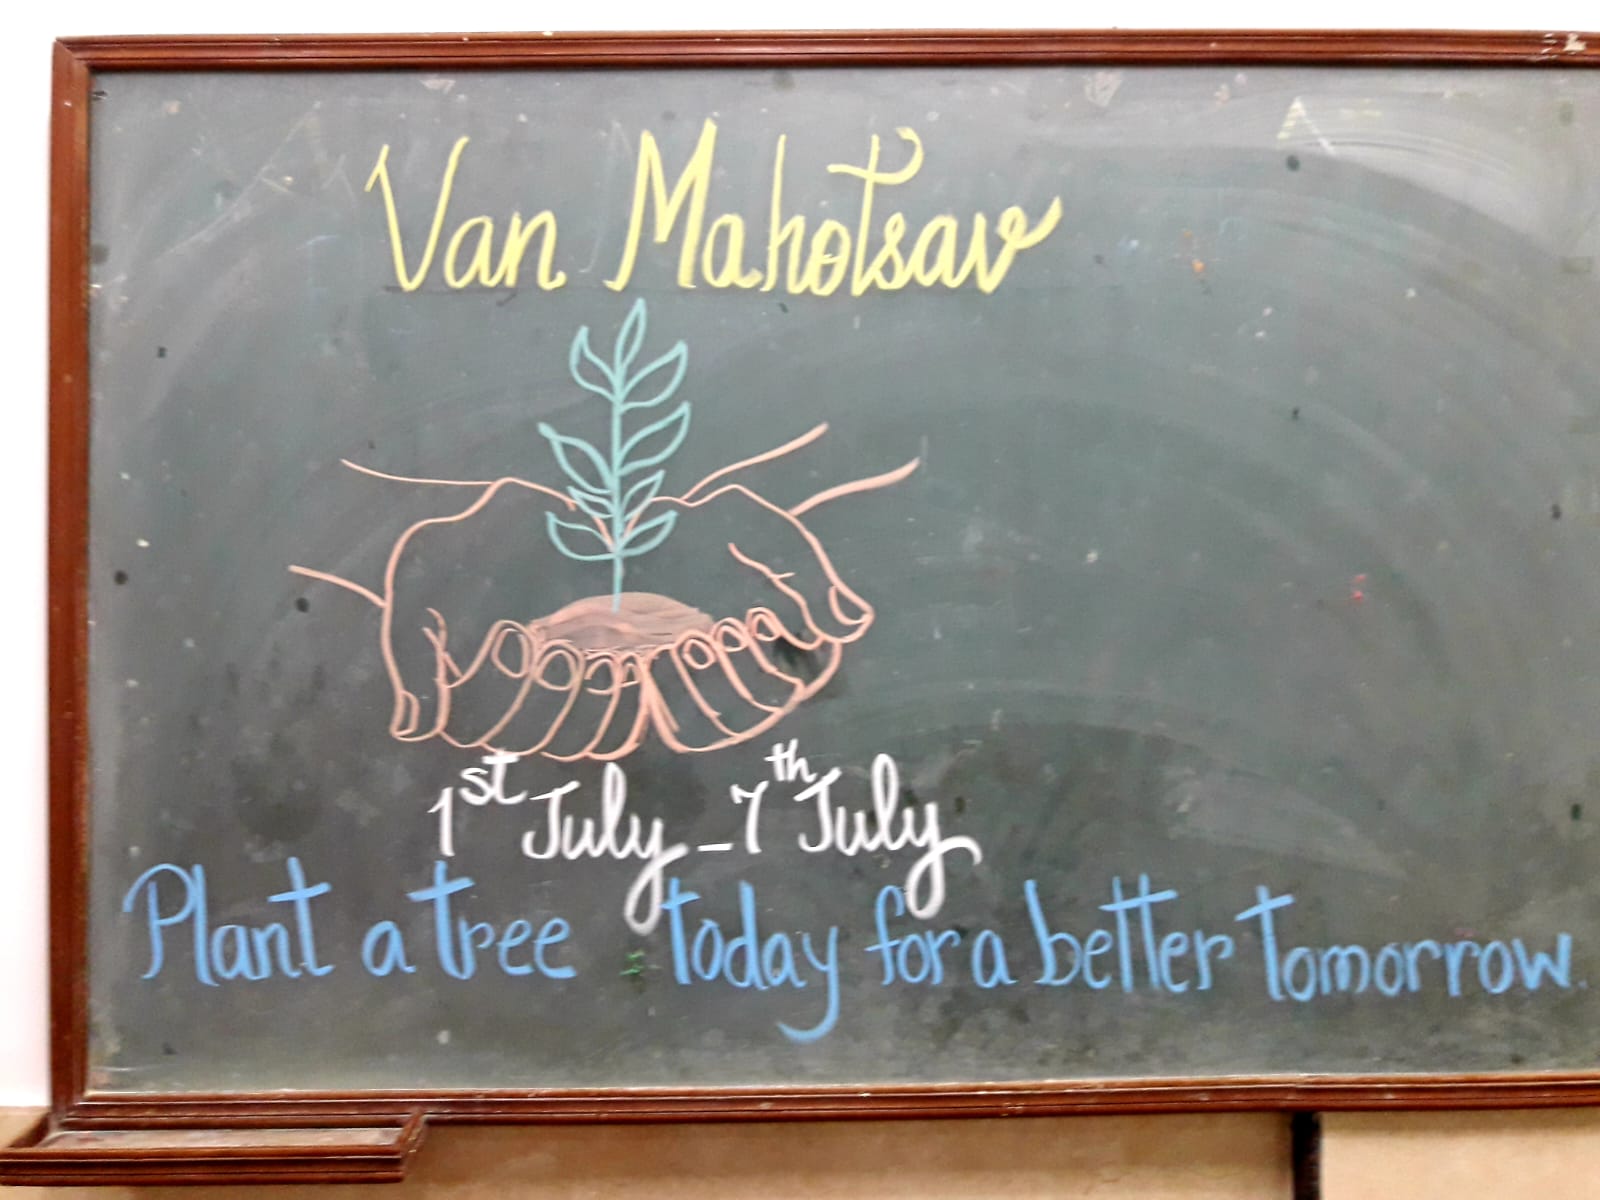 Van Mahotsav
1st July - 7th July
Plant a tree today for a better tomorrow.